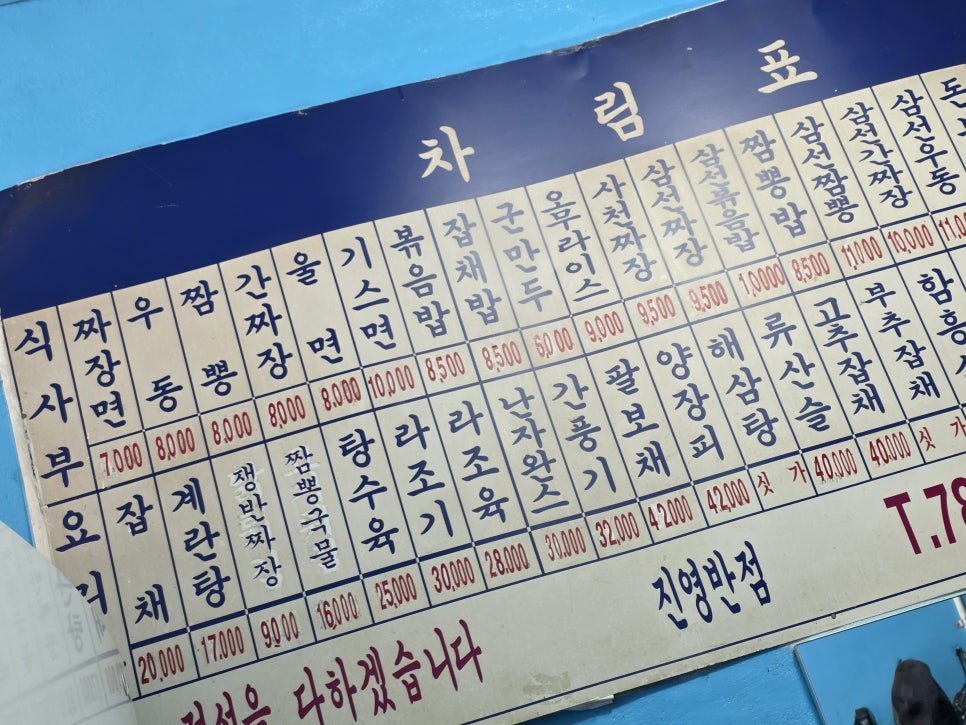 차림표
식사부
짜장면 7.000
우동 8,000
짬뽕 8.000
간짜장 8,000
울면 8.000
기스면 10,000
볶음밥 8,500
잡채밥 8,500
군만두 6,000
오무라이스 9,000
사천짜장 9,500
삼선짜장 9,500
삼선볶음밥 1,0000
짬뽕밥 8,500
삼선짬뽕 11,000
삼선간짜장 10,000
삼선우동
돈
요리
잡채 20,000
계란탕 17.000
쟁반짜장 9,000
짬뽕국물 16,000
탕수육 25,000
라조기 30,000
라조육 28.000
난자완스 30,000
간풍기 32,000
팔보채 42,000
양장피 42,000
해삼탕 싯가
류산슬 40,000
고추잡채 40,000
부추잡채 싯가
함흥
다하겠습니다
진영반점
T.78